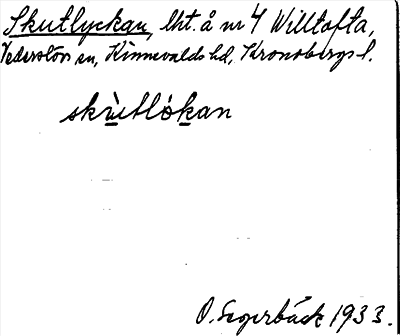 Skutlyckan, lht. å nr 4 Willtofta,
Vederslövs sn, Kinnevalds hd, Kronobergs l.
skùtlókan
O. Segerbäck 1933.